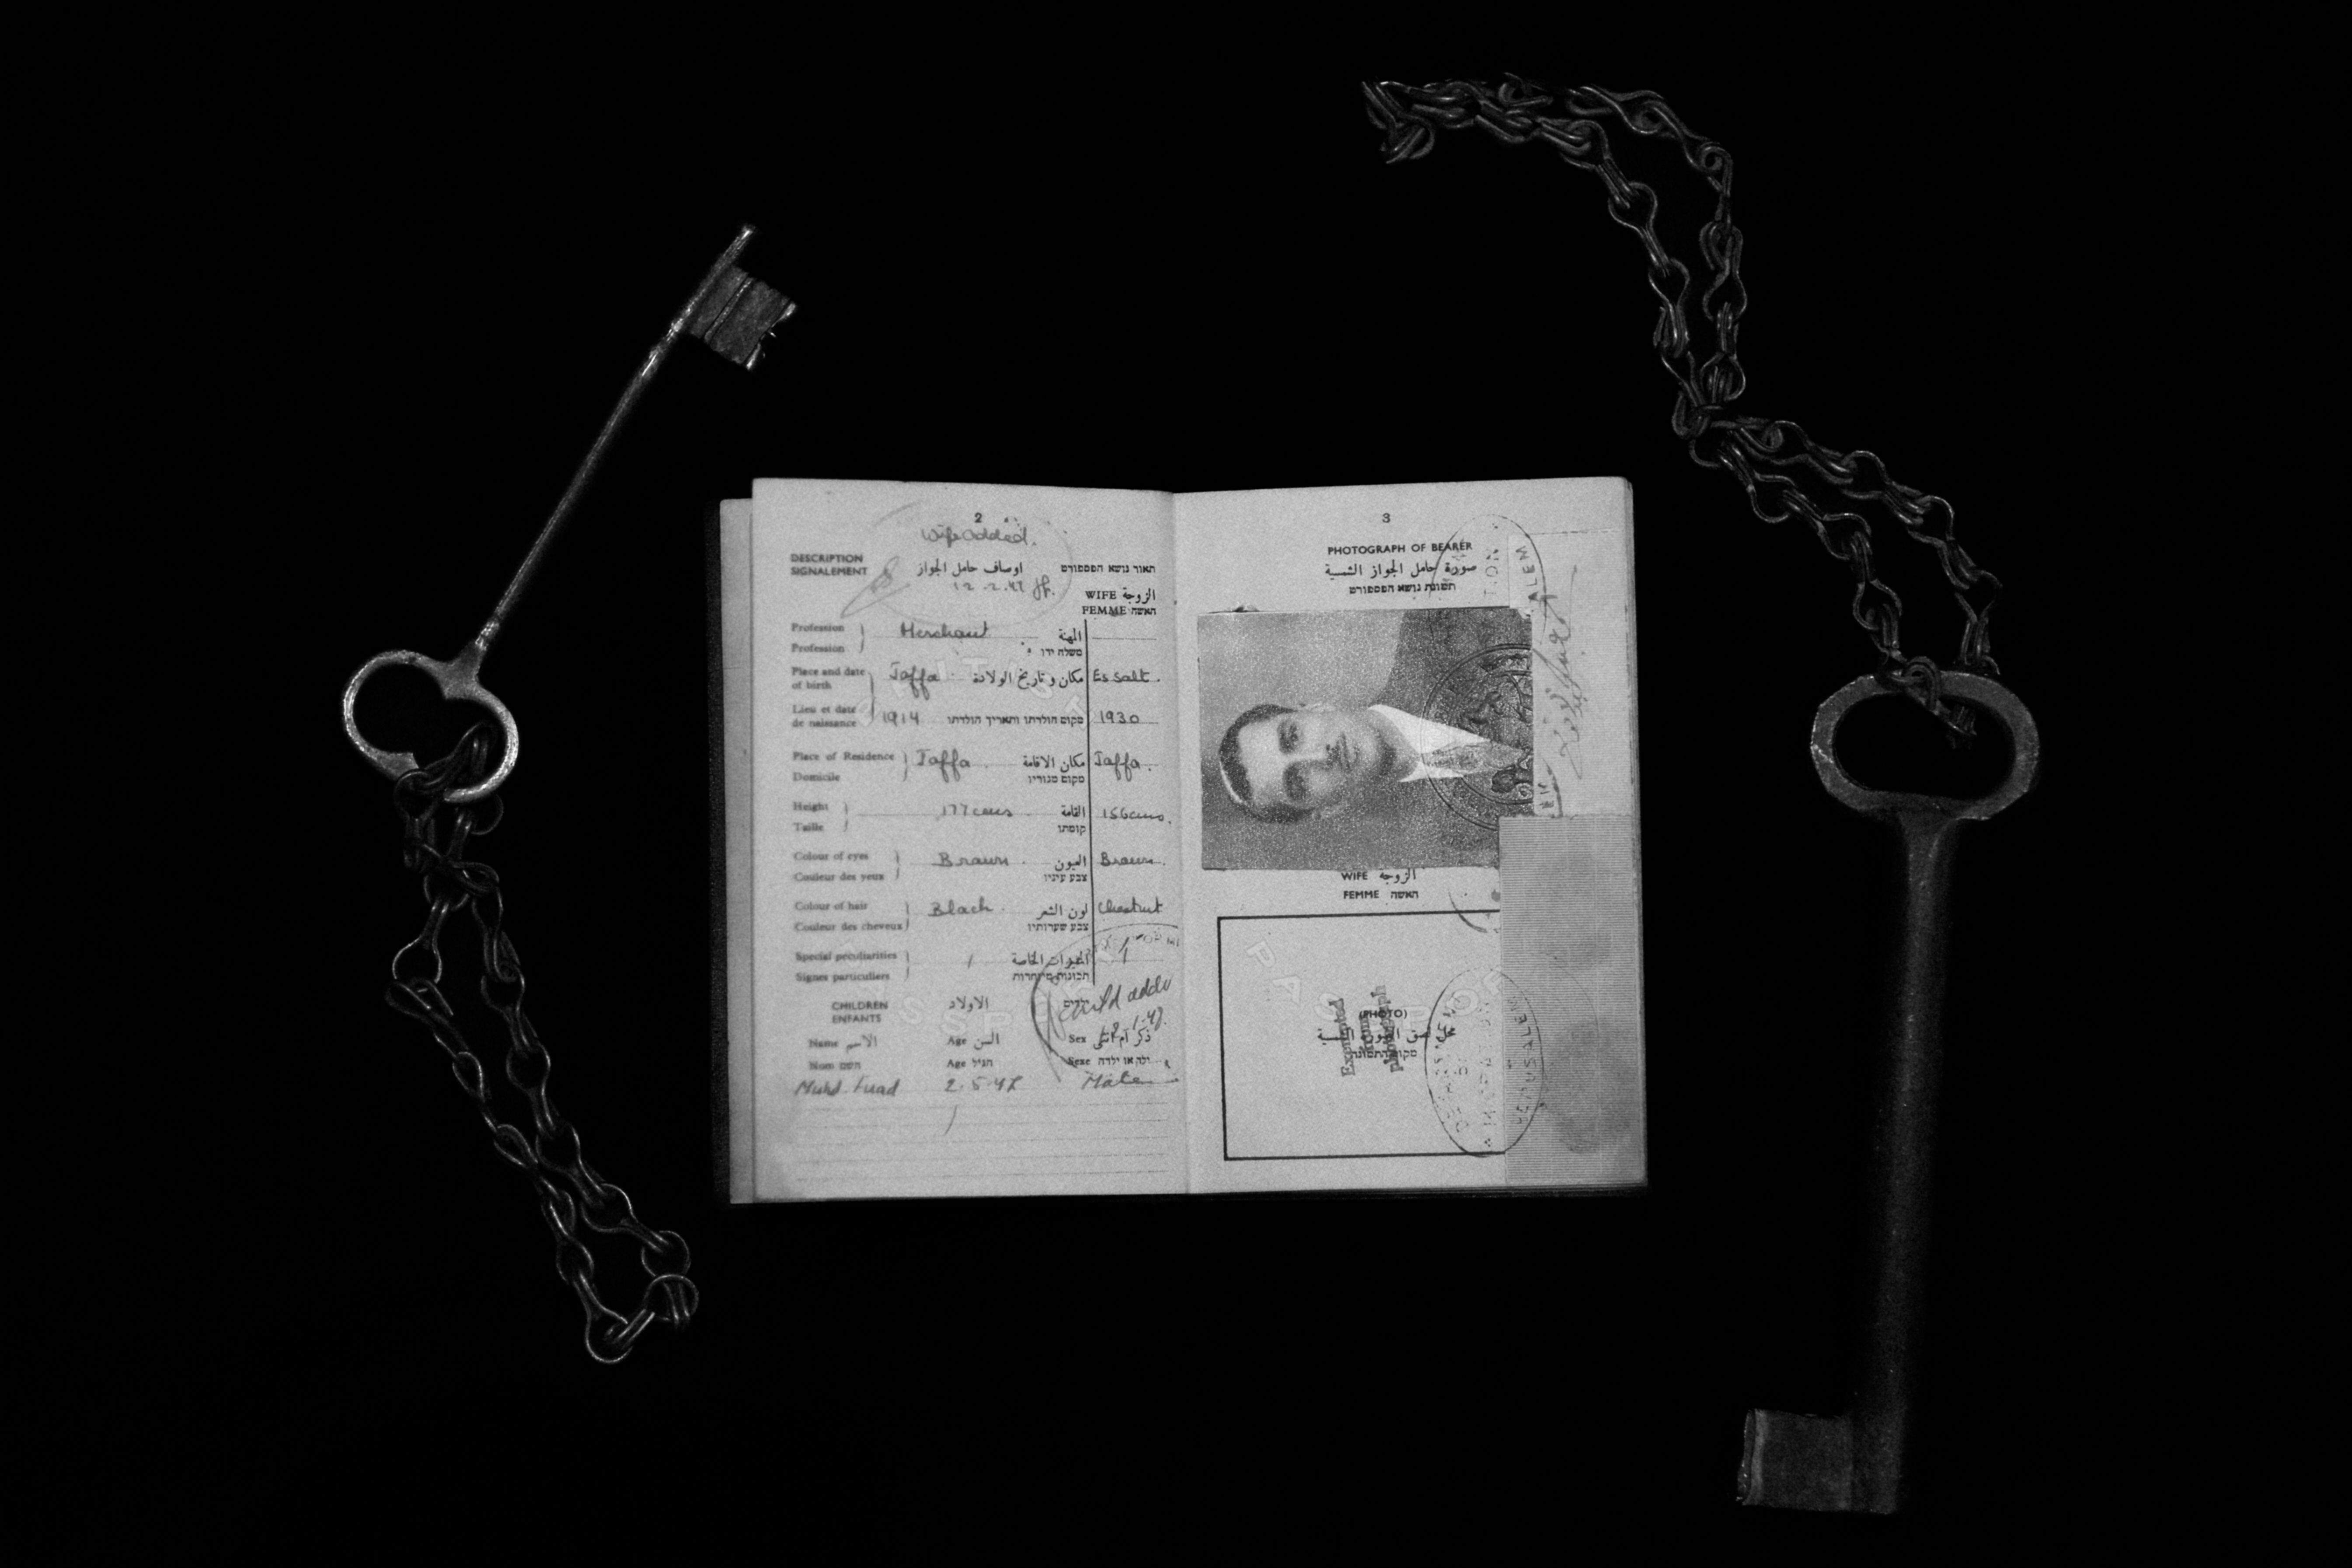 2
Wife added.
DESCRIPTION
SIGNALEMENT
اوصاف حامل الجواز
תאור נושא הפספורט
12.2.47
WIFE الزوجة
FEMME האשה
Profession
Merchant
المهنة
Profession
משלח ידו
Place and date of birth
Jaffa
مكان و تاريخ الولادة
Es Salt.
Lieu et date de naissance
1914
מקום הולדתו ותאריך הולדתו
1930
Place of Residence
Jaffa
مكان الاقامة
Jaffa.
Domicile
מקום מגוריו
Height
177 cms
القامة
156 cms.
Taille
קומתו
Colour of eyes
Brown.
العيون
Brown.
Couleur des yeux
צבע עיניו
Colour of hair
Black.
لون الشعر
Chestnut
Couleur des cheveux
צבע שערותיו
Special peculiarities
المميزات الخاصة
Signes particuliers
CHILDREN
الاولاد
ילדים
ENFANTS
Child
Name الاسم
Age السن
Sex ذكر ام انثى
Nom השם
Age הגיל
Sexe ילד או ילדה
Muhd. Fuad
Male
3
PHOTOGRAPH OF BEARER
صورة حامل الجواز الشمسية
תמונת נושא הפספורט
WIFE الزوجة
FEMME האשה
PASSPO
(PHOTO)
Exempted
from
photograph
محل لصق الصورة الشمسية
מקום התמונה
JERUSALEM